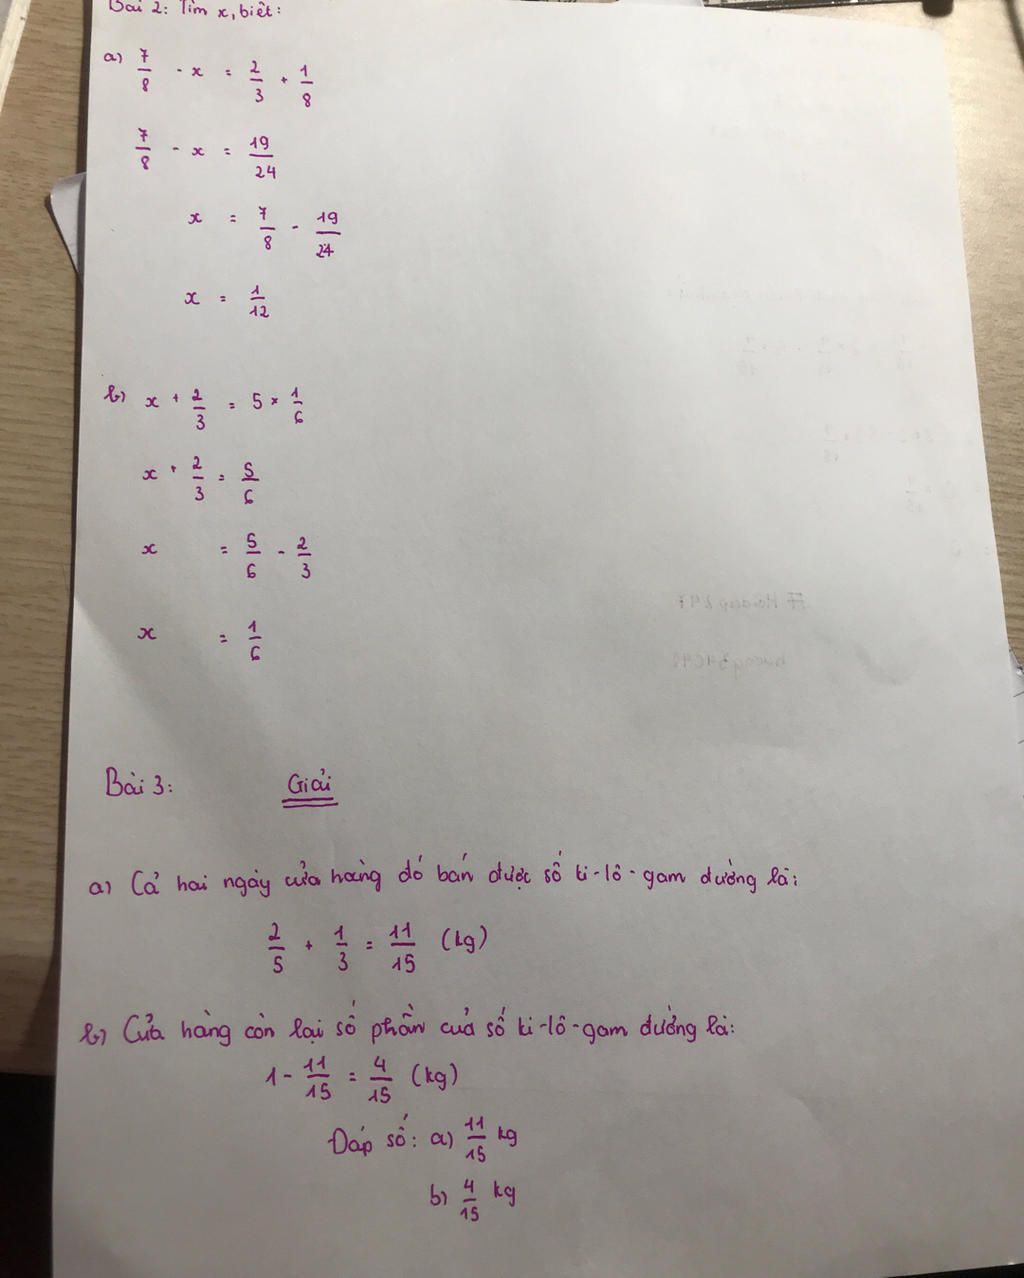 Bài 2: Tìm x, biết:
a) 7/8 - x = 2/3 + 1/8
7/8 - x = 19/24
x = 7/8 - 19/24
x = 1/12
b) x + 2/3 = 5 × 1/6
x + 2/3 = 5/6
x = 5/6 - 2/3
x = 1/6
Bài 3: Giải
a) Cả hai ngày cửa hàng đó bán được số ki-lô-gam đường là:
2/5 + 1/3 = 11/15 (kg)
b) Cửa hàng còn lại số phần của số ki-lô-gam đường là:
1 - 11/15 = 4/15 (kg)
Đáp số: a) 11/15 kg
b) 4/15 kg